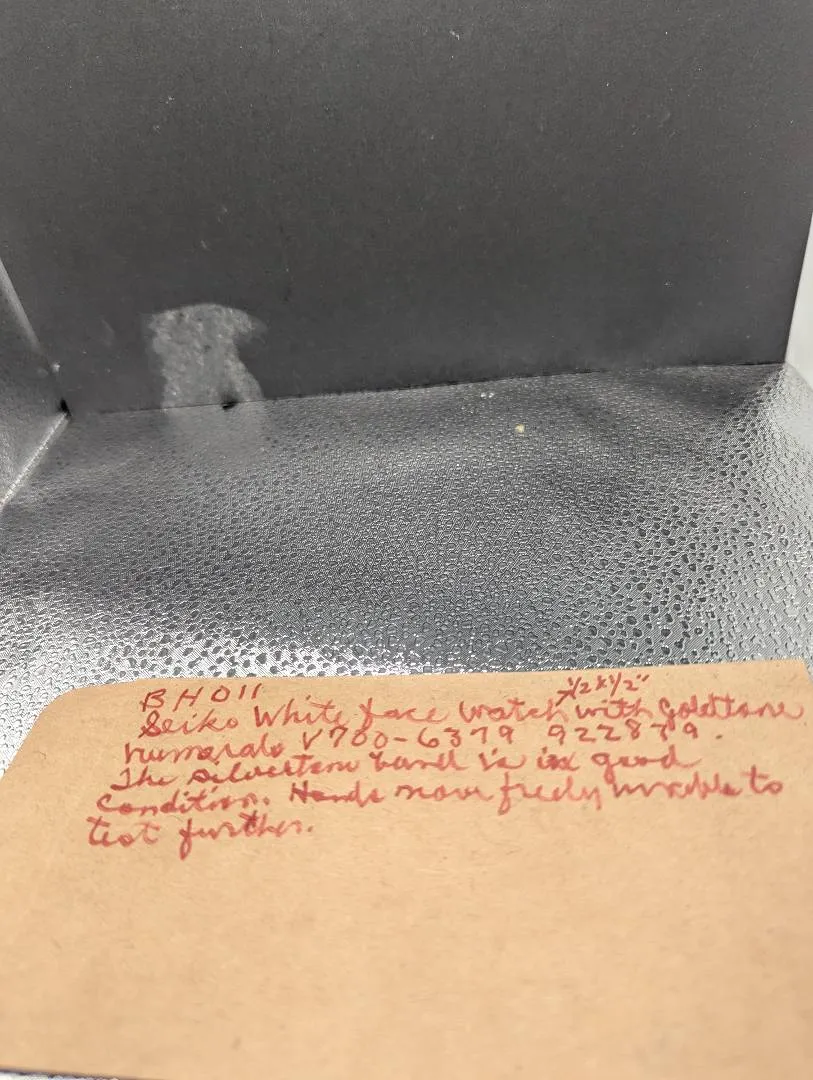 BH011
1/2 x 1/2"
Seiko White face Watch with goldtone
numerals V700-6379 922879.
The silvertone band is in good
condition. Hands move freely unable to
test further.